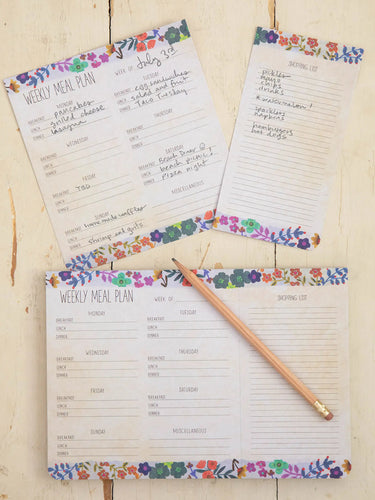 WEEKLY MEAL PLAN
WEEK OF July 3rd
MONDAY
BREAKFAST pancakes
LUNCH grilled cheese
DINNER lasagna
TUESDAY
BREAKFAST egg sandwiches
LUNCH salad and fruit
DINNER Taco Tuesday
WEDNESDAY
BREAKFAST
LUNCH
DINNER
THURSDAY
BREAKFAST
LUNCH
DINNER
FRIDAY
BREAKFAST
LUNCH TBD
DINNER
SATURDAY
BREAKFAST Boat Day
LUNCH beach picnic!
DINNER Pizza night
SUNDAY
BREAKFAST homemade waffles
LUNCH
DINNER shrimp and grits
MISCELLANEOUS
SHOPPING LIST
pickles
mayo
chips
drinks
*watermelon!
sparklers
napkins
hamburgers
hot dogs
WEEKLY MEAL PLAN
WEEK OF
SHOPPING LIST
MONDAY
BREAKFAST
LUNCH
DINNER
TUESDAY
WEDNESDAY
BREAKFAST
LUNCH
DINNER
THURSDAY
FRIDAY
BREAKFAST
LUNCH
DINNER
SATURDAY
SUNDAY
BREAKFAST
LUNCH
DINNER
MISCELLANEOUS